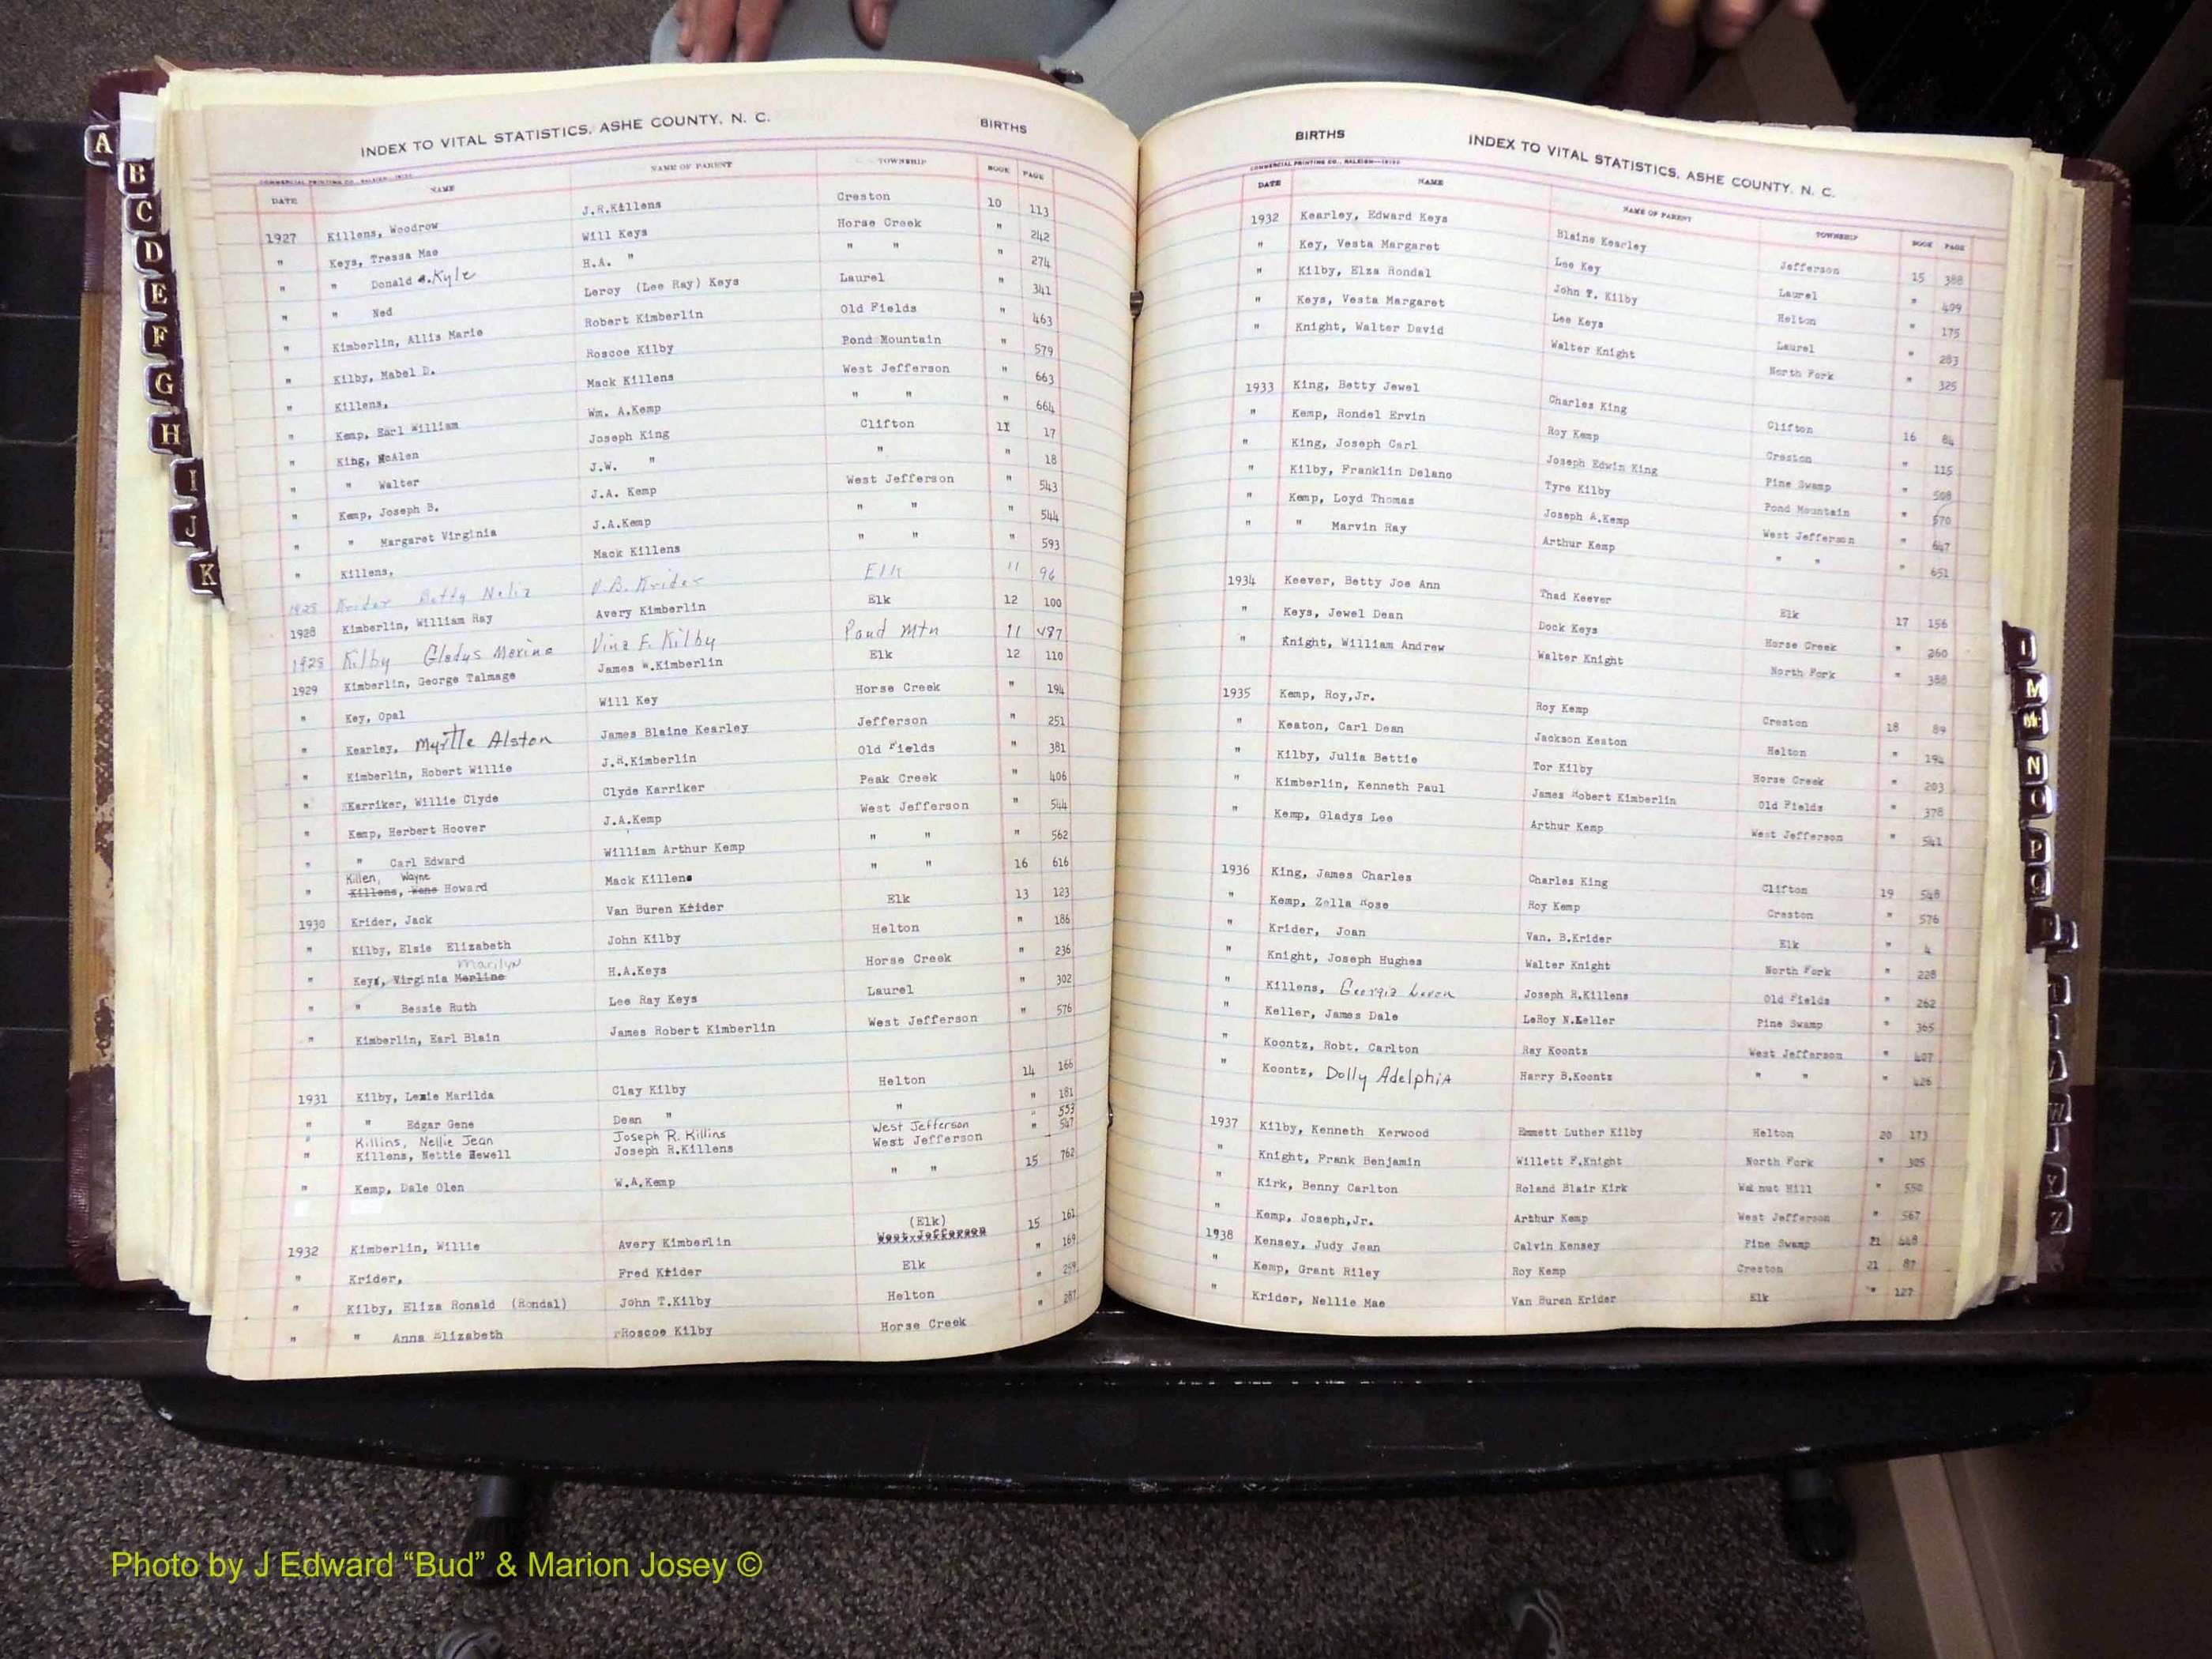 INDEX TO VITAL STATISTICS, ASHE COUNTY, N. C. BIRTHS
COMMERCIAL PRINTING CO., RALEIGH
DATE NAME NAME OF PARENT TOWNSHIP BOOK PAGE
1927 Killens, Woodrow J.R.Killens Creston 10 113
" Keys, Tressa Mae Will Keys Horse Creek " 242
" " Donald Kyle H.A. " " " " 274
" " Ned Leroy (Lee Ray) Keys Laurel " 341
" Kimberlin, Allis Marie Robert Kimberlin Old Fields " 463
" Kilby, Mabel D. Roscoe Kilby Pond Mountain " 579
" Killens, Mack Killens West Jefferson " 663
" Kemp, Earl William Wm. A.Kemp " " " 664
" King, McAlen Joseph King Clifton 11 17
" " Walter J.W. " " " 18
" Kemp, Joseph B. J.A. Kemp West Jefferson " 543
" " Margaret Virginia J.A.Kemp " " " 544
" Killens, Mack Killens " " " 593
1928 Krider Betty Nelia V.B. Krider Elk 11 96
1928 Kimberlin, William Ray Avery Kimberlin Elk 12 100
1928 Kilby Gladys Maxine Vina F. Kilby Pond Mtn 11 487
1929 Kimberlin, George Talmage James W.Kimberlin Elk 12 110
" Key, Opal Will Key Horse Creek " 194
" Kearley, Myrtle Alston James Blaine Kearley Jefferson " 251
" Kimberlin, Robert Willie J.R.Kimberlin Old Fields " 381
" Karriker, Willie Clyde Clyde Karriker Peak Creek " 406
" Kemp, Herbert Hoover J.A.Kemp West Jefferson " 544
" " Carl Edward William Arthur Kemp " " " 562
Killen, Wayne
" Killens, Wane Howard Mack Killens " " 16 616
1930 Krider, Jack Van Buren Krider Elk 13 123
" Kilby, Elsie Elizabeth John Kilby Helton " 186
Marilyn
" Keys, Virginia Merline H.A.Keys Horse Creek " 236
" " Bessie Ruth Lee Ray Keys Laurel " 302
" Kimberlin, Earl Blain James Robert Kimberlin West Jefferson " 576
1931 Kilby, Lexie Marilda Clay Kilby Helton 14 166
" " Edgar Gene Dean " " " 181
" Killins, Nellie Jean Joseph R. Killins West Jefferson " 553
" Killens, Nettie Jewell Joseph R.Killens West Jefferson " 547
" Kemp, Dale Olen W.A.Kemp " " 15 762
(Elk)
1932 Kimberlin, Willie Avery Kimberlin West Jefferson 15 161
" Krider, Fred Krider Elk " 169
" Kilby, Eliza Ronald (Rondal) John T.Kilby Helton " 259
" " Anna Elizabeth Roscoe Kilby Horse Creek " 287
BIRTHS INDEX TO VITAL STATISTICS, ASHE COUNTY, N. C.
COMMERCIAL PRINTING CO., RALEIGH
DATE NAME NAME OF PARENT TOWNSHIP BOOK PAGE
1932 Kearley, Edward Keys Blaine Kearley Jefferson 15 388
" Key, Vesta Margaret Lee Key Laurel " 409
" Kilby, Elza Rondal John T. Kilby Helton " 175
" Keys, Vesta Margaret Lee Keys Laurel " 283
" Knight, Walter David Walter Knight North Fork " 325
1933 King, Betty Jewel Charles King Clifton 16 84
" Kemp, Rondel Ervin Roy Kemp Creston " 115
" King, Joseph Carl Joseph Edwin King Pine Swamp " 508
" Kilby, Franklin Delano Tyre Kilby Pond Mountain " 570
" Kemp, Loyd Thomas Joseph A.Kemp West Jefferson " 647
" " Marvin Ray Arthur Kemp " " " 651
1934 Keever, Betty Joe Ann Thad Keever Elk 17 156
" Keys, Jewel Dean Dock Keys Horse Creek " 260
" Knight, William Andrew Walter Knight North Fork " 388
1935 Kemp, Roy,Jr. Roy Kemp Creston 18 89
" Keaton, Carl Dean Jackson Keaton Helton " 194
" Kilby, Julia Bettie Tor Kilby Horse Creek " 203
" Kimberlin, Kenneth Paul James Robert Kimberlin Old Fields " 378
" Kemp, Gladys Lee Arthur Kemp West Jefferson " 541
1936 King, James Charles Charles King Clifton 19 548
" Kemp, Zella Rose Roy Kemp Creston " 576
" Krider, Joan Van. B.Krider Elk " 4
" Knight, Joseph Hughes Walter Knight North Fork " 228
" Killens, Georgia Joseph R.Killens Old Fields " 262
" Keller, James Dale LeRoy N.Keller Pine Swamp " 365
" Koontz, Robt. Carlton Ray Koontz West Jefferson " 407
" Koontz, Dolly Adelphia Harry B.Koontz " " " 426
1937 Kilby, Kenneth Kerwood Emmett Luther Kilby Helton 20 173
" Knight, Frank Benjamin Willett F.Knight North Fork " 305
" Kirk, Benny Carlton Roland Blair Kirk Walnut Hill " 550
" Kemp, Joseph,Jr. Arthur Kemp West Jefferson " 567
1938 Kensey, Judy Jean Calvin Kensey Pine Swamp 21 448
" Kemp, Grant Riley Roy Kemp Creston 21 87
" Krider, Nellie Mae Van Buren Krider Elk " 127
A
B
C
D
E
F
G
H
I
J
K
M
Mc
N
O
P
Q
W
Y
Z
Photo by J Edward “Bud” & Marion Josey ©